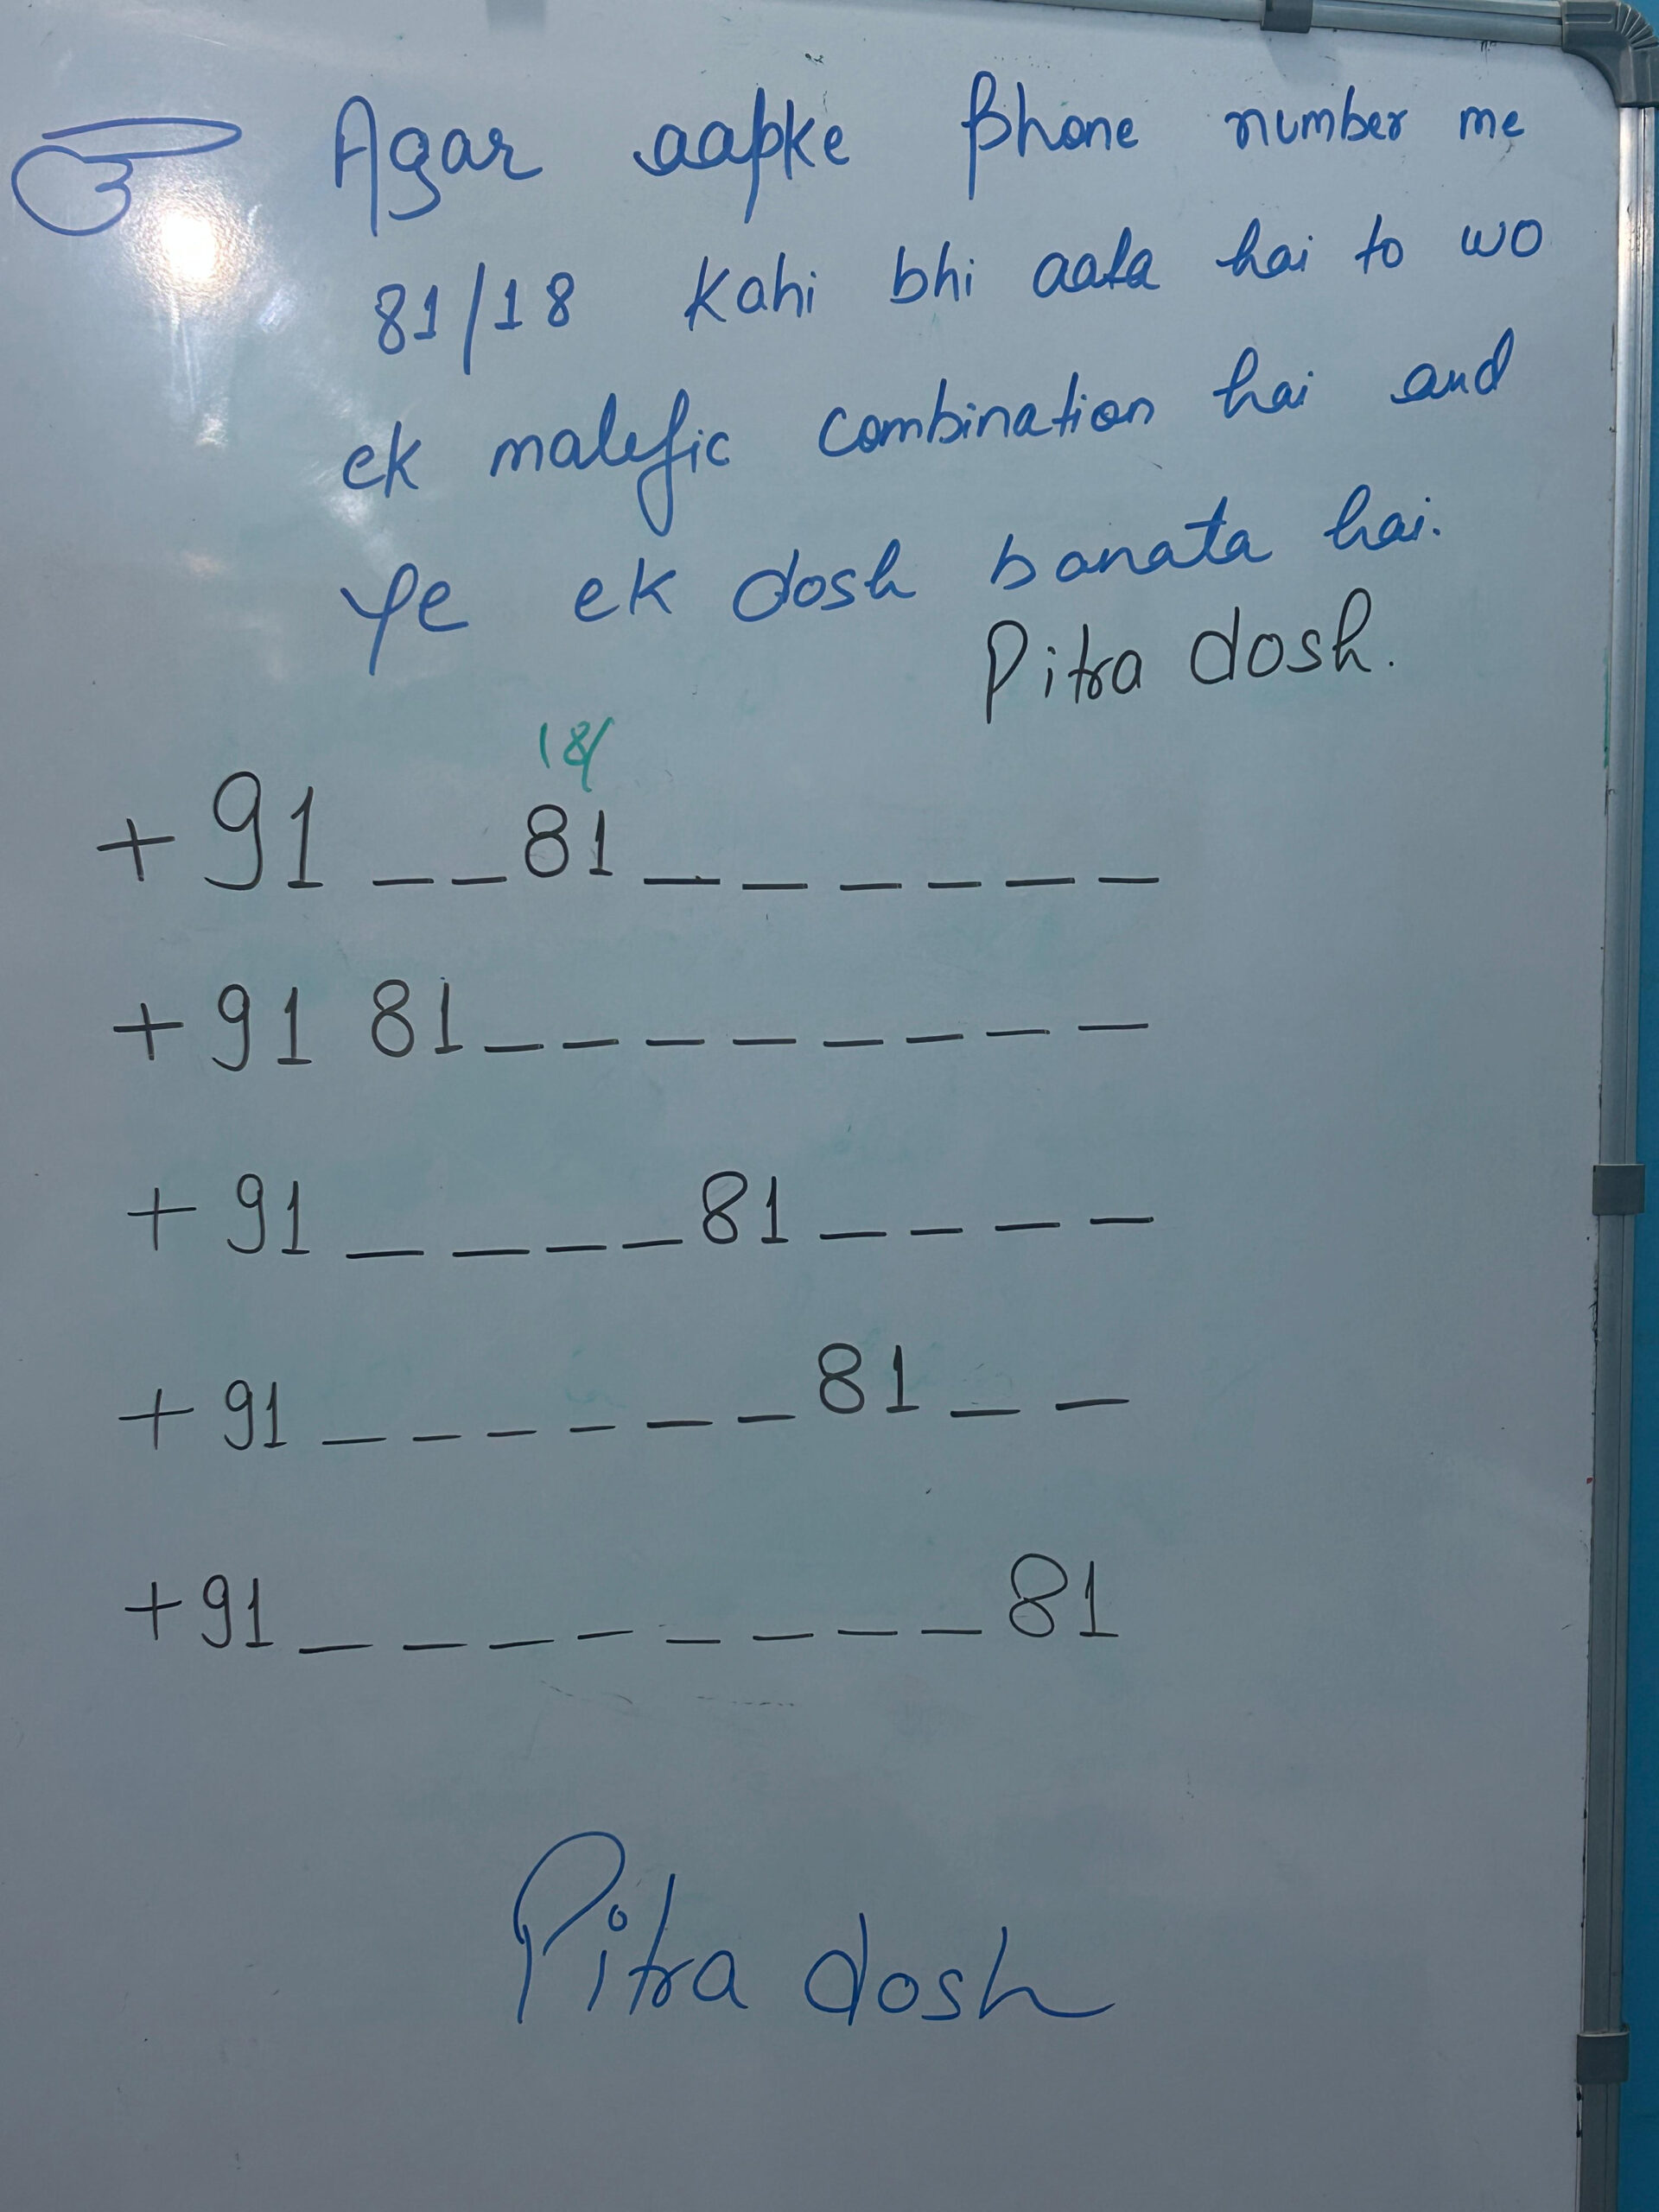 Agar aapke phone number me
81/18 kahi bhi aata hai to wo
ek malefic combination hai and
Ye ek dosh banata hai.
Pitra dosh.
18/
+91 _ _ 81 _ _ _ _ _ _
+91 81 _ _ _ _ _ _ _ _
+91 _ _ _ _ 81 _ _ _ _
+91 _ _ _ _ _ _ 81 _ _
+91 _ _ _ _ _ _ _ _ 81
Pitra dosh